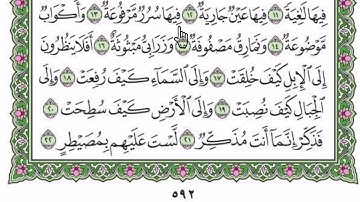 فِيهَا لَٰغِيَةً ١١ فِيهَا عَيْنٌ جَارِيَةٌ ١٢ فِيهَا سُرُرٌ مَّرْفُوعَةٌ ١٣ وَأَكْوَابٌ
مَّوْضُوعَةٌ ١٤ وَنَمَارِقُ مَصْفُوفَةٌ ١٥ وَزَرَابِيُّ مَبْثُوثَةٌ ١٦ أَفَلَا يَنظُرُونَ
إِلَى الْإِبِلِ كَيْفَ خُلِقَتْ ١٧ وَإِلَى السَّمَاءِ كَيْفَ رُفِعَتْ ١٨ وَإِلَى
الْجِبَالِ كَيْفَ نُصِبَتْ ١٩ وَإِلَى الْأَرْضِ كَيْفَ سُطِحَتْ ٢٠
فَذَكِّرْ إِنَّمَا أَنتَ مُذَكِّرٌ ٢١ لَّسْتَ عَلَيْهِم بِمُصَيْطِرٍ ٢٢
٥٩٢